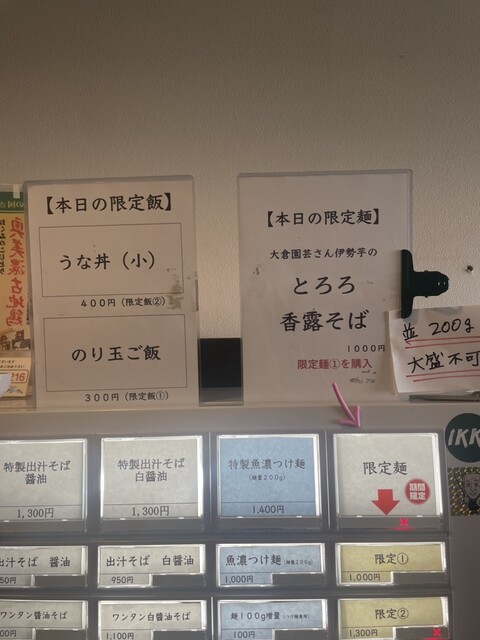 【本日の限定飯】
うな丼（小）
400円（限定飯②）
のり玉ご飯
300円（限定飯①）
【本日の限定麺】
大倉園芸さん伊勢芋の
とろろ
香露そば
1000円
限定麺①を購入
並 200g
大盛不可
奥美濃古地鶏
IKK
特製出汁そば
醤油
1,300円
特製出汁そば
白醤油
1,300円
特製魚濃つけ麺
（麺量200g）
1,400円
限定麺
期間
限定
出汁そば 醤油
50円
出汁そば 白醤油
950円
魚濃つけ麺（麺量200g）
1,000円
限定①
1,000円
ワンタン醤油そば
ワンタン白醤油そば
1,100円
麺100g増量
100円
限定②
1,300円